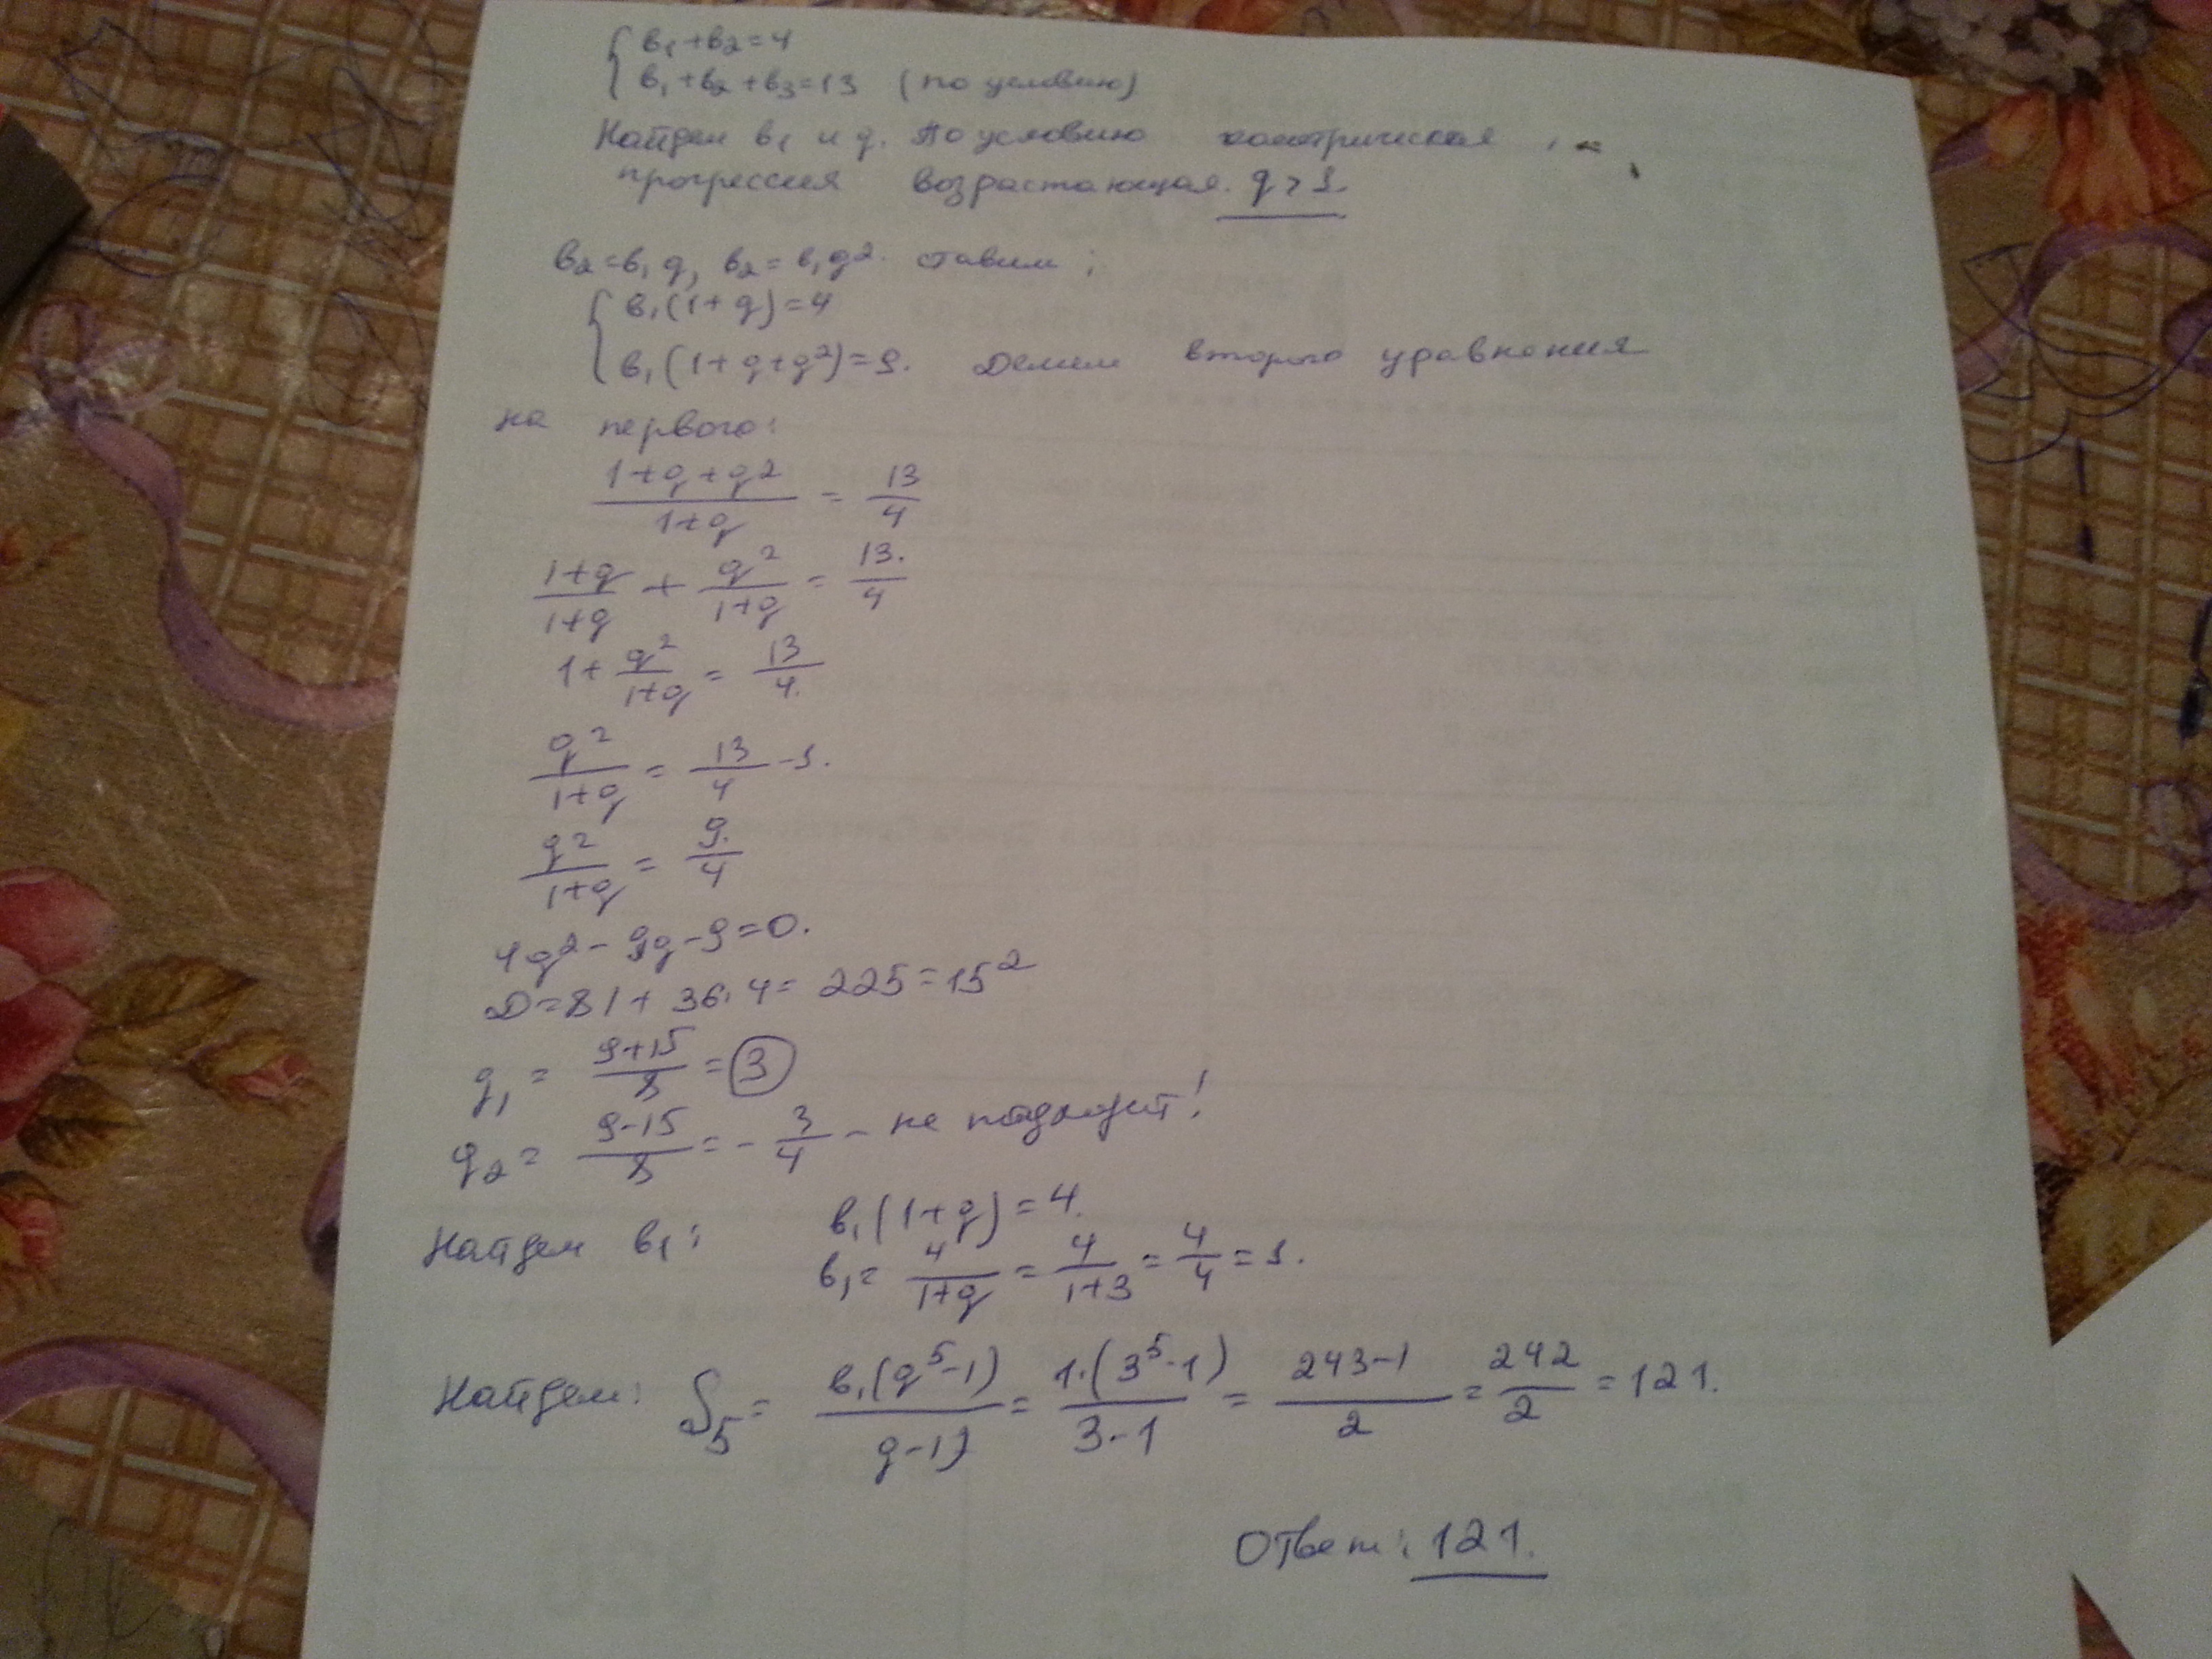 { в₁+в₂=4
{ в₁+в₂+в₃=13 (по условию)
Найдем в₁ и q. По условию геометрическая
прогрессия возрастающая. q>1.
в₂=в₁q, в₂=в₁q². ставим;
{ в₁(1+q)=4
{ в₁(1+q+q²)=9. Делим второго уравнения
на первого:
(1+q+q²)/(1+q) = 13/4
(1+q)/(1+q) + q²/(1+q) = 13/4
1+ q²/(1+q) = 13/4
q²/(1+q) = 13/4 -1.
q²/(1+q) = 9/4
4q²-9q-9=0.
D=81+36·4=225=15²
q₁= (9+15)/8 = 3
q₂= (9-15)/8 = -3/4 - не подходит!
в₁(1+q)=4.
Найдем в₁: в₁= 4/(1+q) = 4/(1+3) = 4/4 =1.
Найдем: S₅= в₁(q⁵-1)/(q-1) = 1·(3⁵-1)/(3-1) = (243-1)/2 = 242/2 =121.
Ответ: 121.